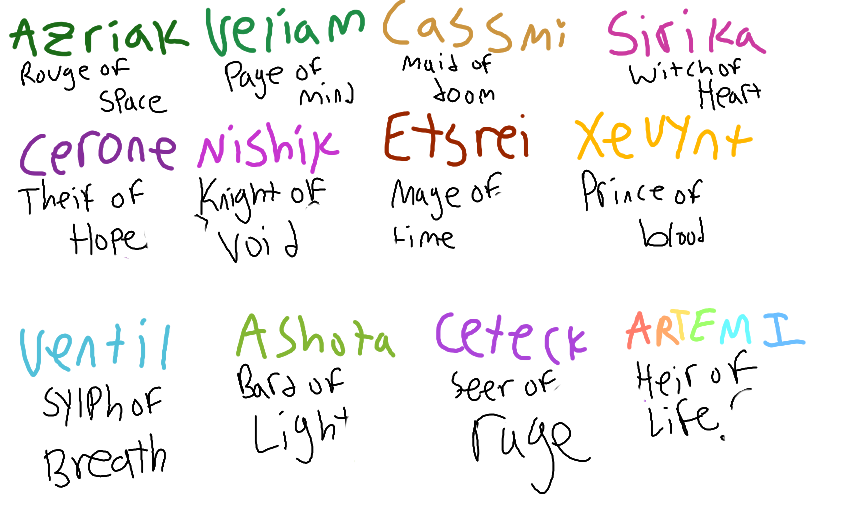 Azriak
Rouge of
Space
Veliam
Page of
mind
Cassmi
Maid of
doom
Sirika
Witch of
Heart
Cerone
Theif of
Hope
Nishik
Knight of
Void
Etsrei
Mage of
time
Xevynt
Prince of
blood
Ventil
Sylph of
Breath
Ashota
Bard of
Light
Ceteck
Seer of
rage
ARTEMI
Heir of
Life?